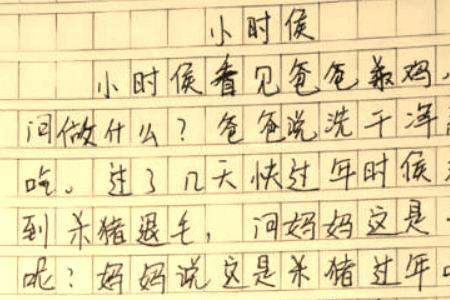 小时侯
小时侯看见爸爸鸡，
问做什么？爸爸说洗干净
吃。过了几天快过年时侯
到杀猪退毛，问妈妈这是
呢？妈妈说这是杀猪过年